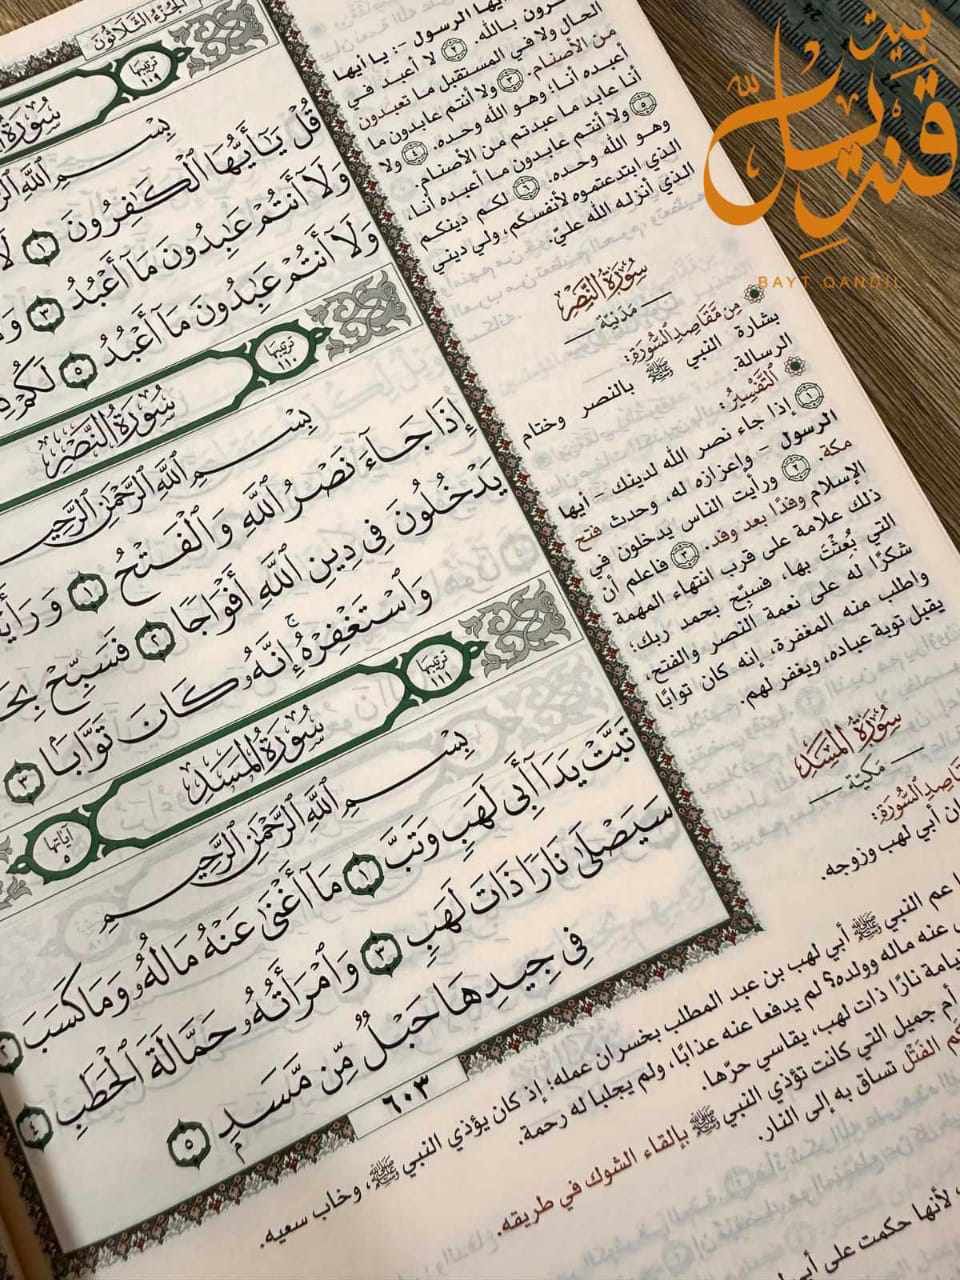 الجزء الثلاثون
ترتيبها
١٠٩
سورة
بسم الله
قل يٰٓأيها الكٰفرون ١
ولآ أنتم عٰبدون مآ أعبد ٣
ولآ أنتم عٰبدون مآ أعبد ٥ لكم
ترتيبها
١١٠
سورة النصر
بسم الله الرحمٰن الرحيم
إذا جآء نصر الله والفتح ١
يدخلون في دين الله أفواجا ٢ فسبح
واستغفره إنه كان توابا ٣
ترتيبها
١١١
سورة المسد
آياتها
٥
بسم الله الرحمٰن الرحيم
تبت يدآ أبي لهب وتب ١ مآ أغنىٰ عنه ماله وما كسب ٢
سيصلىٰ نارا ذات لهب ٣ وامرأته حمالة الحطب ٤
في جيدها حبل من مسد ٥
٦٠٣
أيها الرسول -: يا أيها
بالله. ٢ لا أعبد في
الحال ولا في المستقبل ما تعبدون
من الأصنام. ٣ ولا أنتم عابدون ما
أعبده أنا؛ وهو الله وحده. ٤ ولا
أنا عابد ما عبدتم من الأصنام.
٥ ولا أنتم عابدون ما أعبده أنا،
وهو الله وحده. ٦ لكم دينكم
الذي ابتدعتموه لأنفسكم، ولي ديني
الذي أنزله الله عليّ.
سورة النصر
مدنية
من مقاصد السورة:
بشارة النبي ﷺ بالنصر وختام
الرسالة.
التفسير:
١ إذا جاء نصر الله لدينك - أيها
الرسول - وإعزازه له، وحدث فتح
مكة. ٢ ورأيت الناس يدخلون في
الإسلام وفدًا بعد وفد. ٣ فاعلم أن
ذلك علامة على قرب انتهاء المهمة
التي بُعثْتَ بها، فسبّح بحمد ربك؛
شكرًا له على نعمة النصر والفتح،
واطلب منه المغفرة، إنه كان توابًا
يقبل توبة عباده، ويغفر لهم.
سورة المسد
مكية
السورة:
أبي لهب وزوجه.
عم النبي ﷺ أبي لهب بن عبد المطلب بخسران عمله؛ إذ كان يؤذي النبي ﷺ، وخاب سعيه.
عنه ماله وولده؟ لم يدفعا عنه عذابًا، ولم يجلبا له رحمة.
نارًا ذات لهب، يقاسي حرّها.
أم جميل التي كانت تؤذي النبي ﷺ بإلقاء الشوك في طريقه.
الفتل تساق به إلى النار.
لأنها حكمت على
بيت
قنديل
BAYT QANDIL